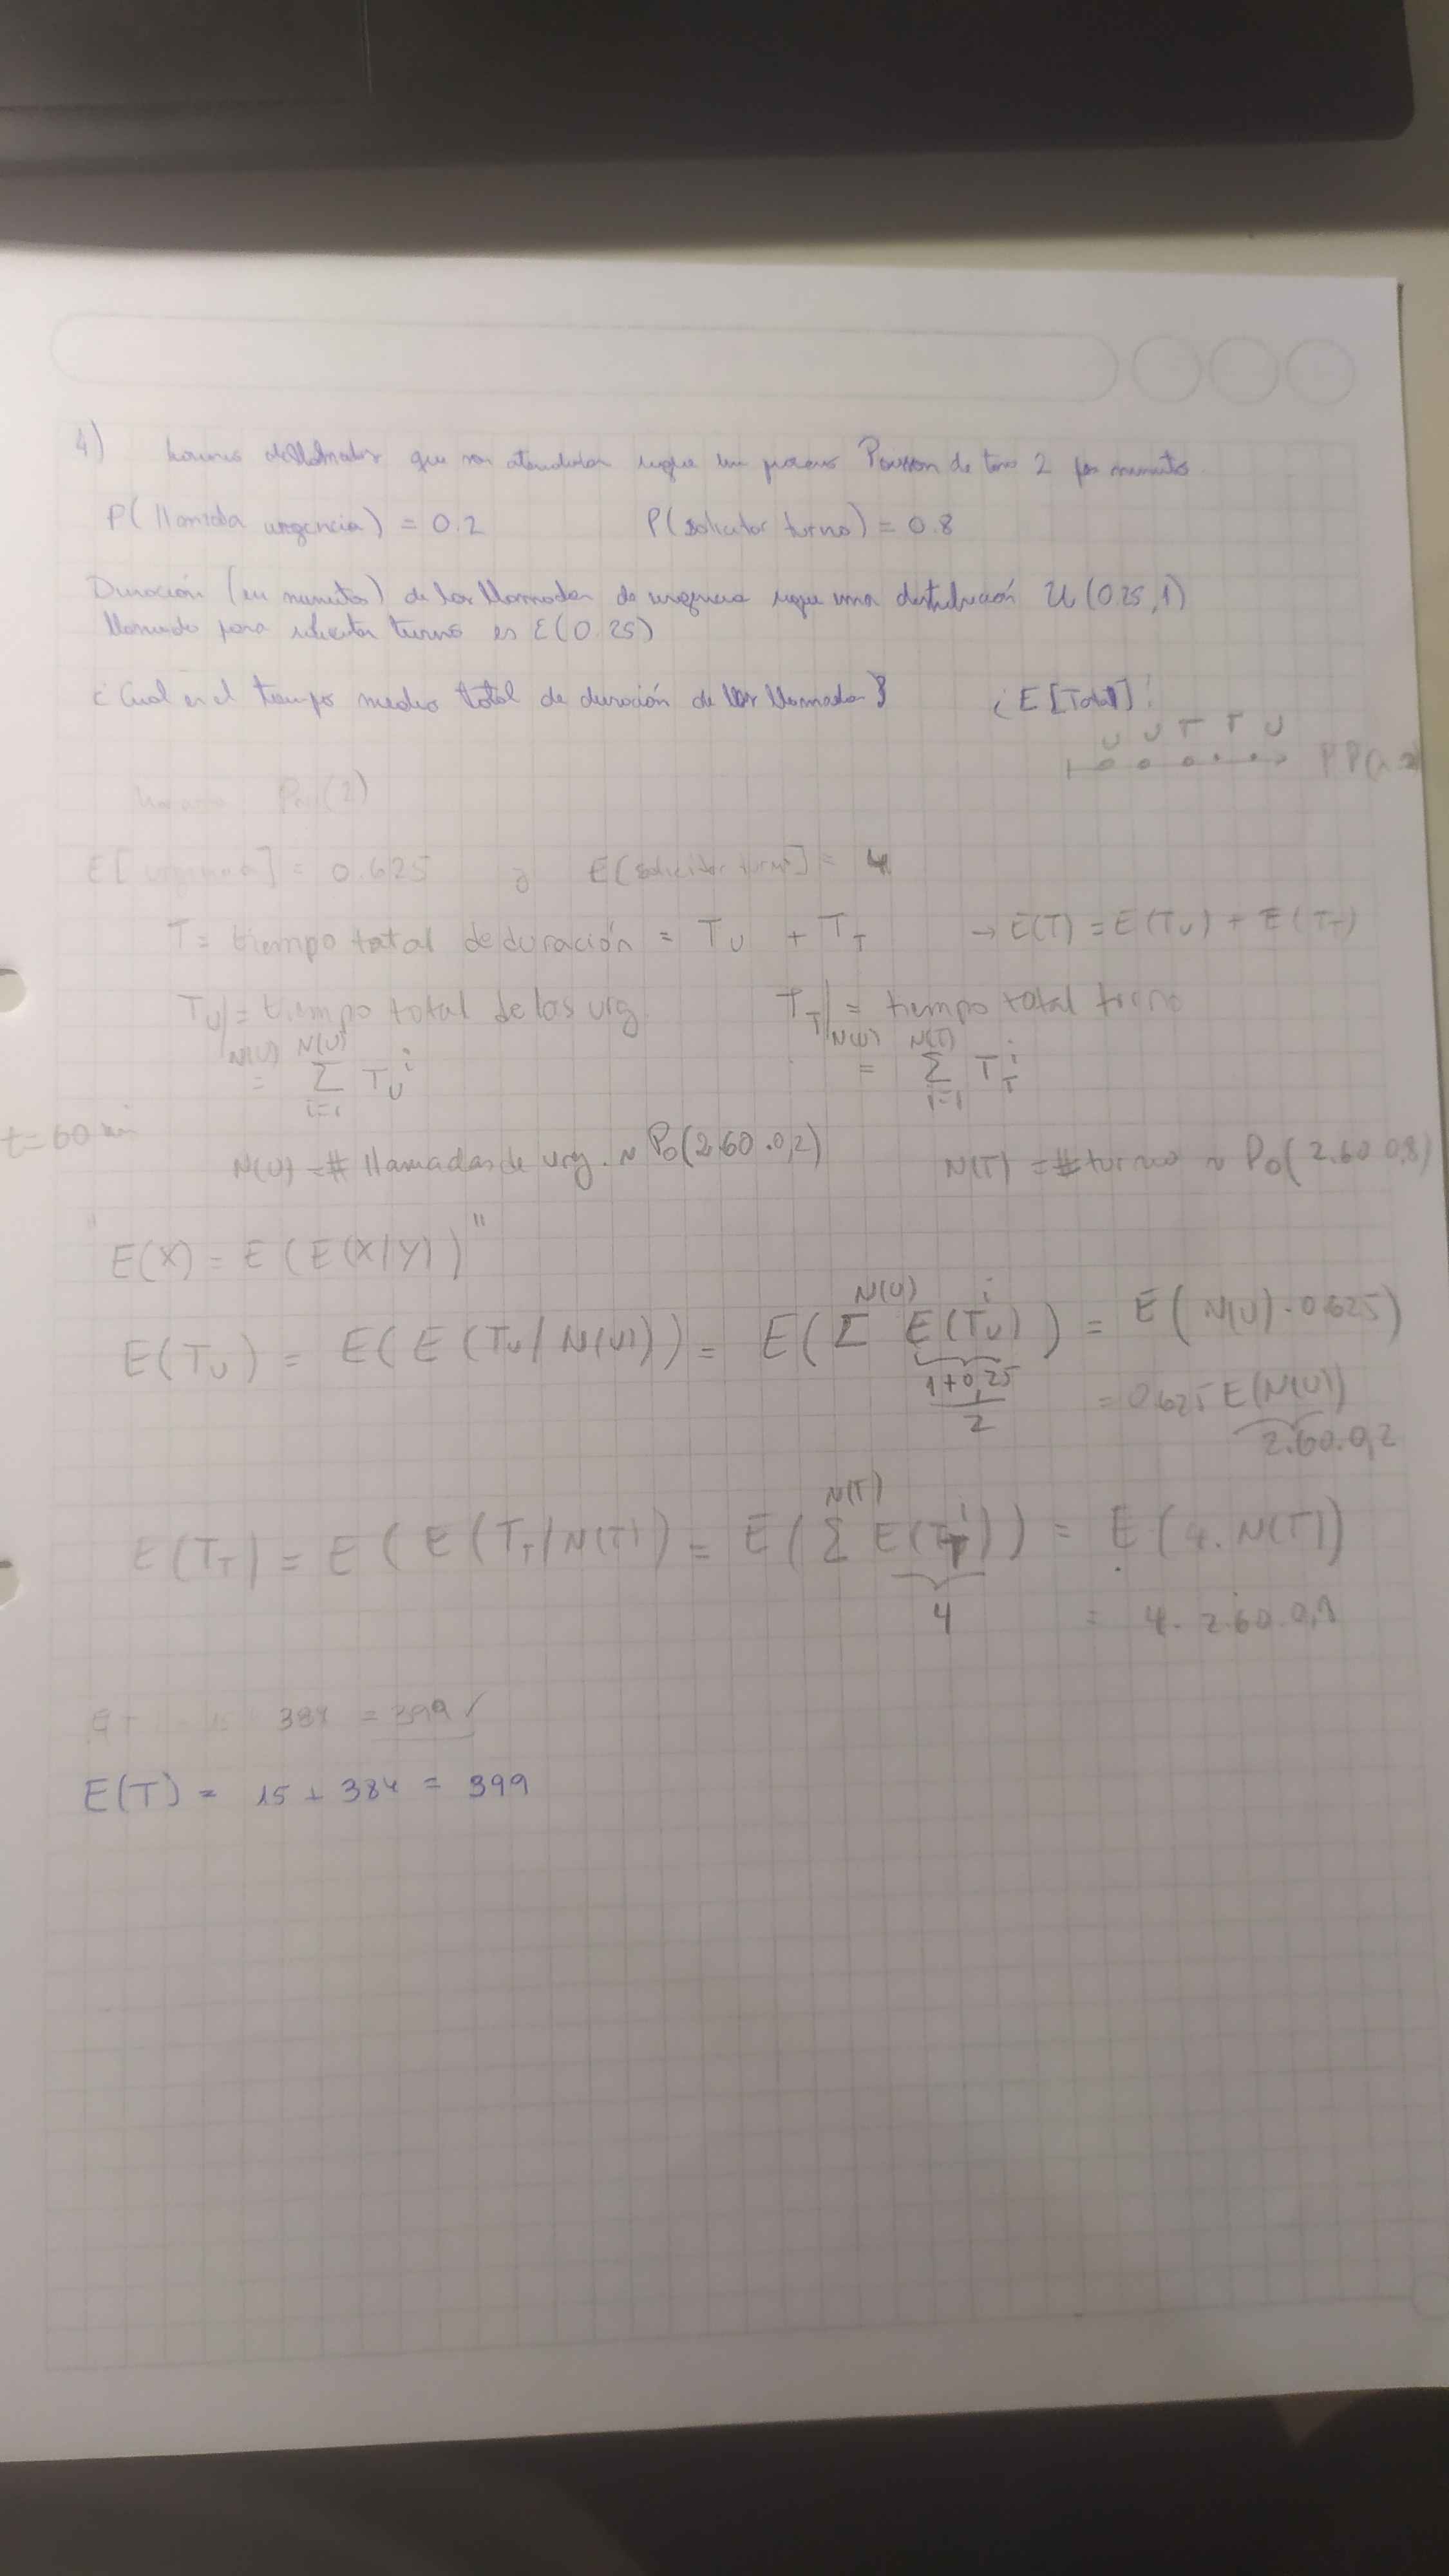 4) que son atendidas sigue un proceso Poisson de tasa 2 por minuto.
P(llamada urgencia) = 0.2 P(solicitar turno) = 0.8
Duración (en minutos) de las llamadas de urgencia sigue una distribución U(0.25, 1)
llamada para solicitar turno es E(0.25)
¿Cual es el tiempo medio total de duración de las llamadas? ¿E[Total]?
U U T T U
Poi(2)
E[urgencia] = 0.625 y E[solicitar turno] = 4
T = tiempo total de duración = T_U + T_T → E(T) = E(T_U) + E(T_T)
T_U| = tiempo total de las urg. T_T| = tiempo total turno
N(U) N(U) N(U) N(T)
= Σ T_U^i = Σ T_T^i
i=1 i=1
t=60 min
N(U) = # llamadas de urg. ~ Po(2.60.0,2) N(T) = # turno ~ Po(2.60 0,8)
"E(X) = E(E(X/Y))"
E(T_U) = E(E(T_U/N(U))) = E(Σ^N(U) E(T_U^i)) = E(N(U) · 0.625)
1+0,25
2
= 0.625 E(N(U))
2.60.0,2
E(T_T) = E(E(T_T/N(T)) = E(Σ^N(T) E(T_T^i)) = E(4. N(T))
4 = 4. 2.60.0,8
384 = 399 ✓
E(T) = 15 + 384 = 399